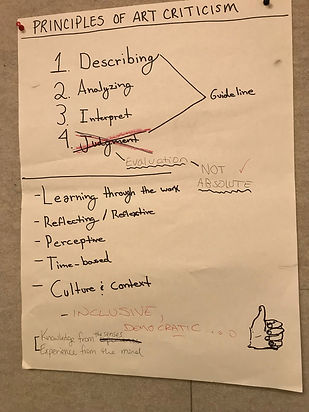 PRINCIPLES OF ART CRITICISM
1. Describing
2. Analyzing
3. Interpret
Guideline
4. Judgment
Evaluation
NOT ✓
ABSOLUTE
- Learning through the work
- Reflecting / Reflexive
- Perceptive
- Time-based
- Culture & Context
- INCLUSIVE,
DEMOCRATIC ...
the senses
[Knowledge from
Experience from the mind